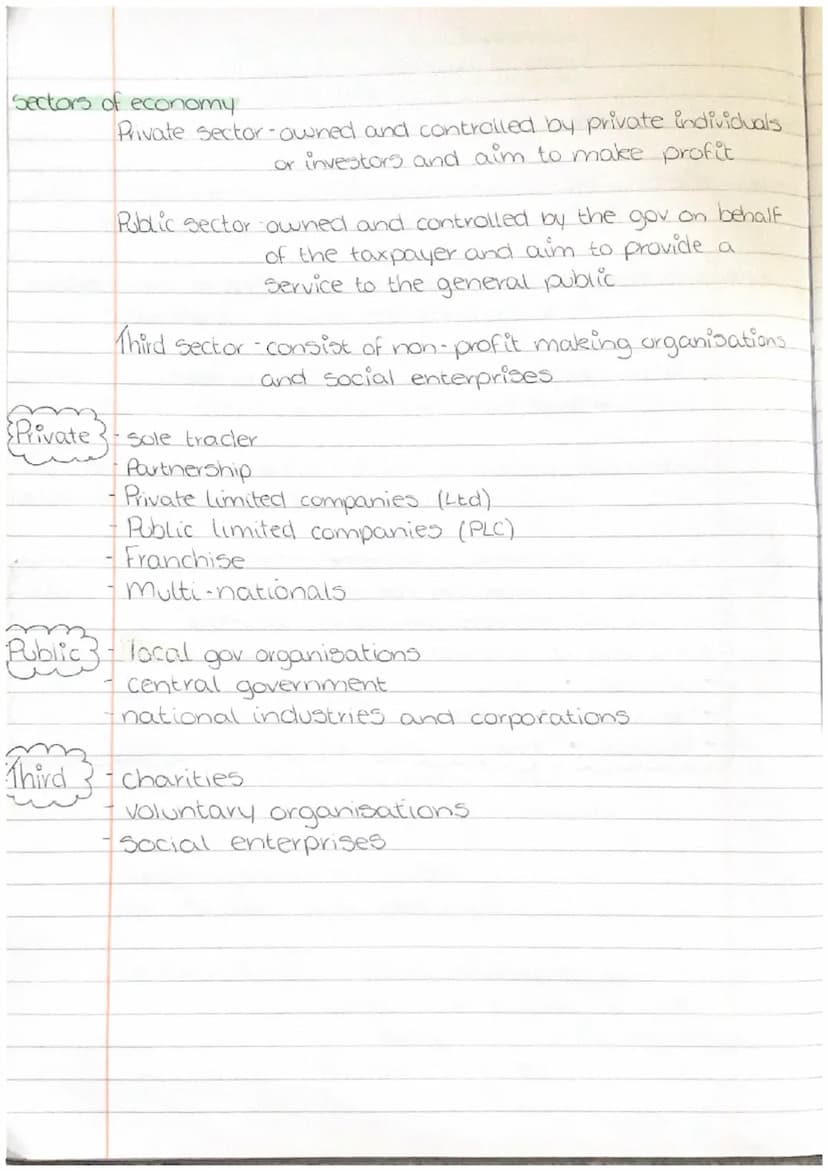 Sectors of economy
Private sector - owned and controlled by private individuals
or investors and aim to make profit
Public sector - owned and controlled by the gov on behalf
of the taxpayer and aim to provide a
service to the general public
Third sector - consist of non-profit making organisations
and social enterprises
Private - sole trader
- Partnership
- Private limited companies (Ltd)
- Public limited companies (PLC)
- Franchise
- Multi-nationals
Public - local gov organisations
- central government
- national industries and corporations
Third - charities
- voluntary organisations
- social enterprises